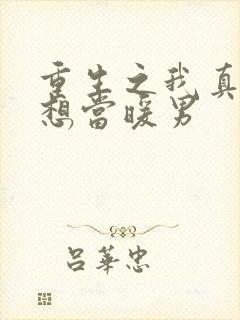 重生之我真
想當暖男
吕華忠